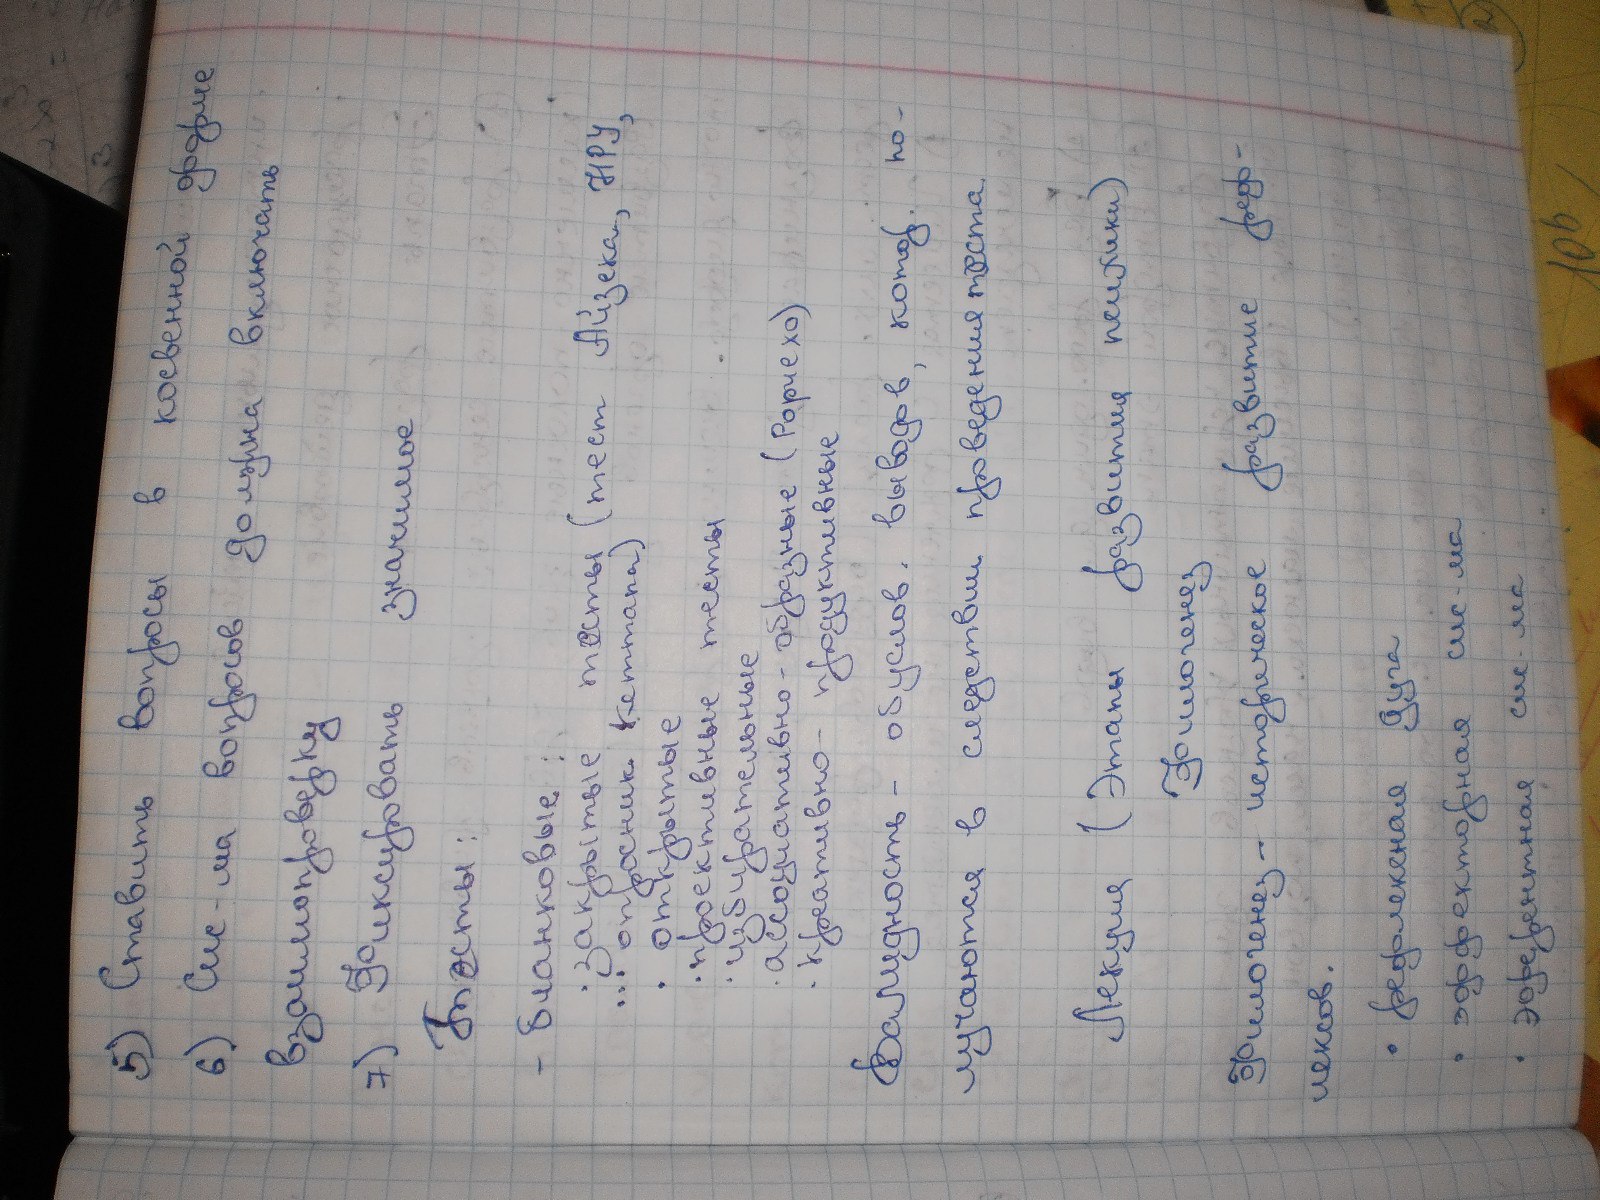 5) Ставить вопросы в косвенной форме
6) Сис-ма вопросов должна включать
взаимопроверку
7) Фиксировать значимое
Тесты:
- бланковые:
· закрытые тесты (тест Айзека, НРУ,
... опросник Кеттата)
· открытые
· проективные тесты
· избирательные
· ассоциативно-образные (Рорчехо)
· креативно-продуктивные
Валидность - обуслов. выводов, котор. по-
лучаются в следствии проведения теста.
Лекция (Этапы развития психики)
Филогенез
Филогенез - историческое развитие реф-
лексов.
• рефлексная дуга
• эффекторная сис-ма
• эферентная сис-ма